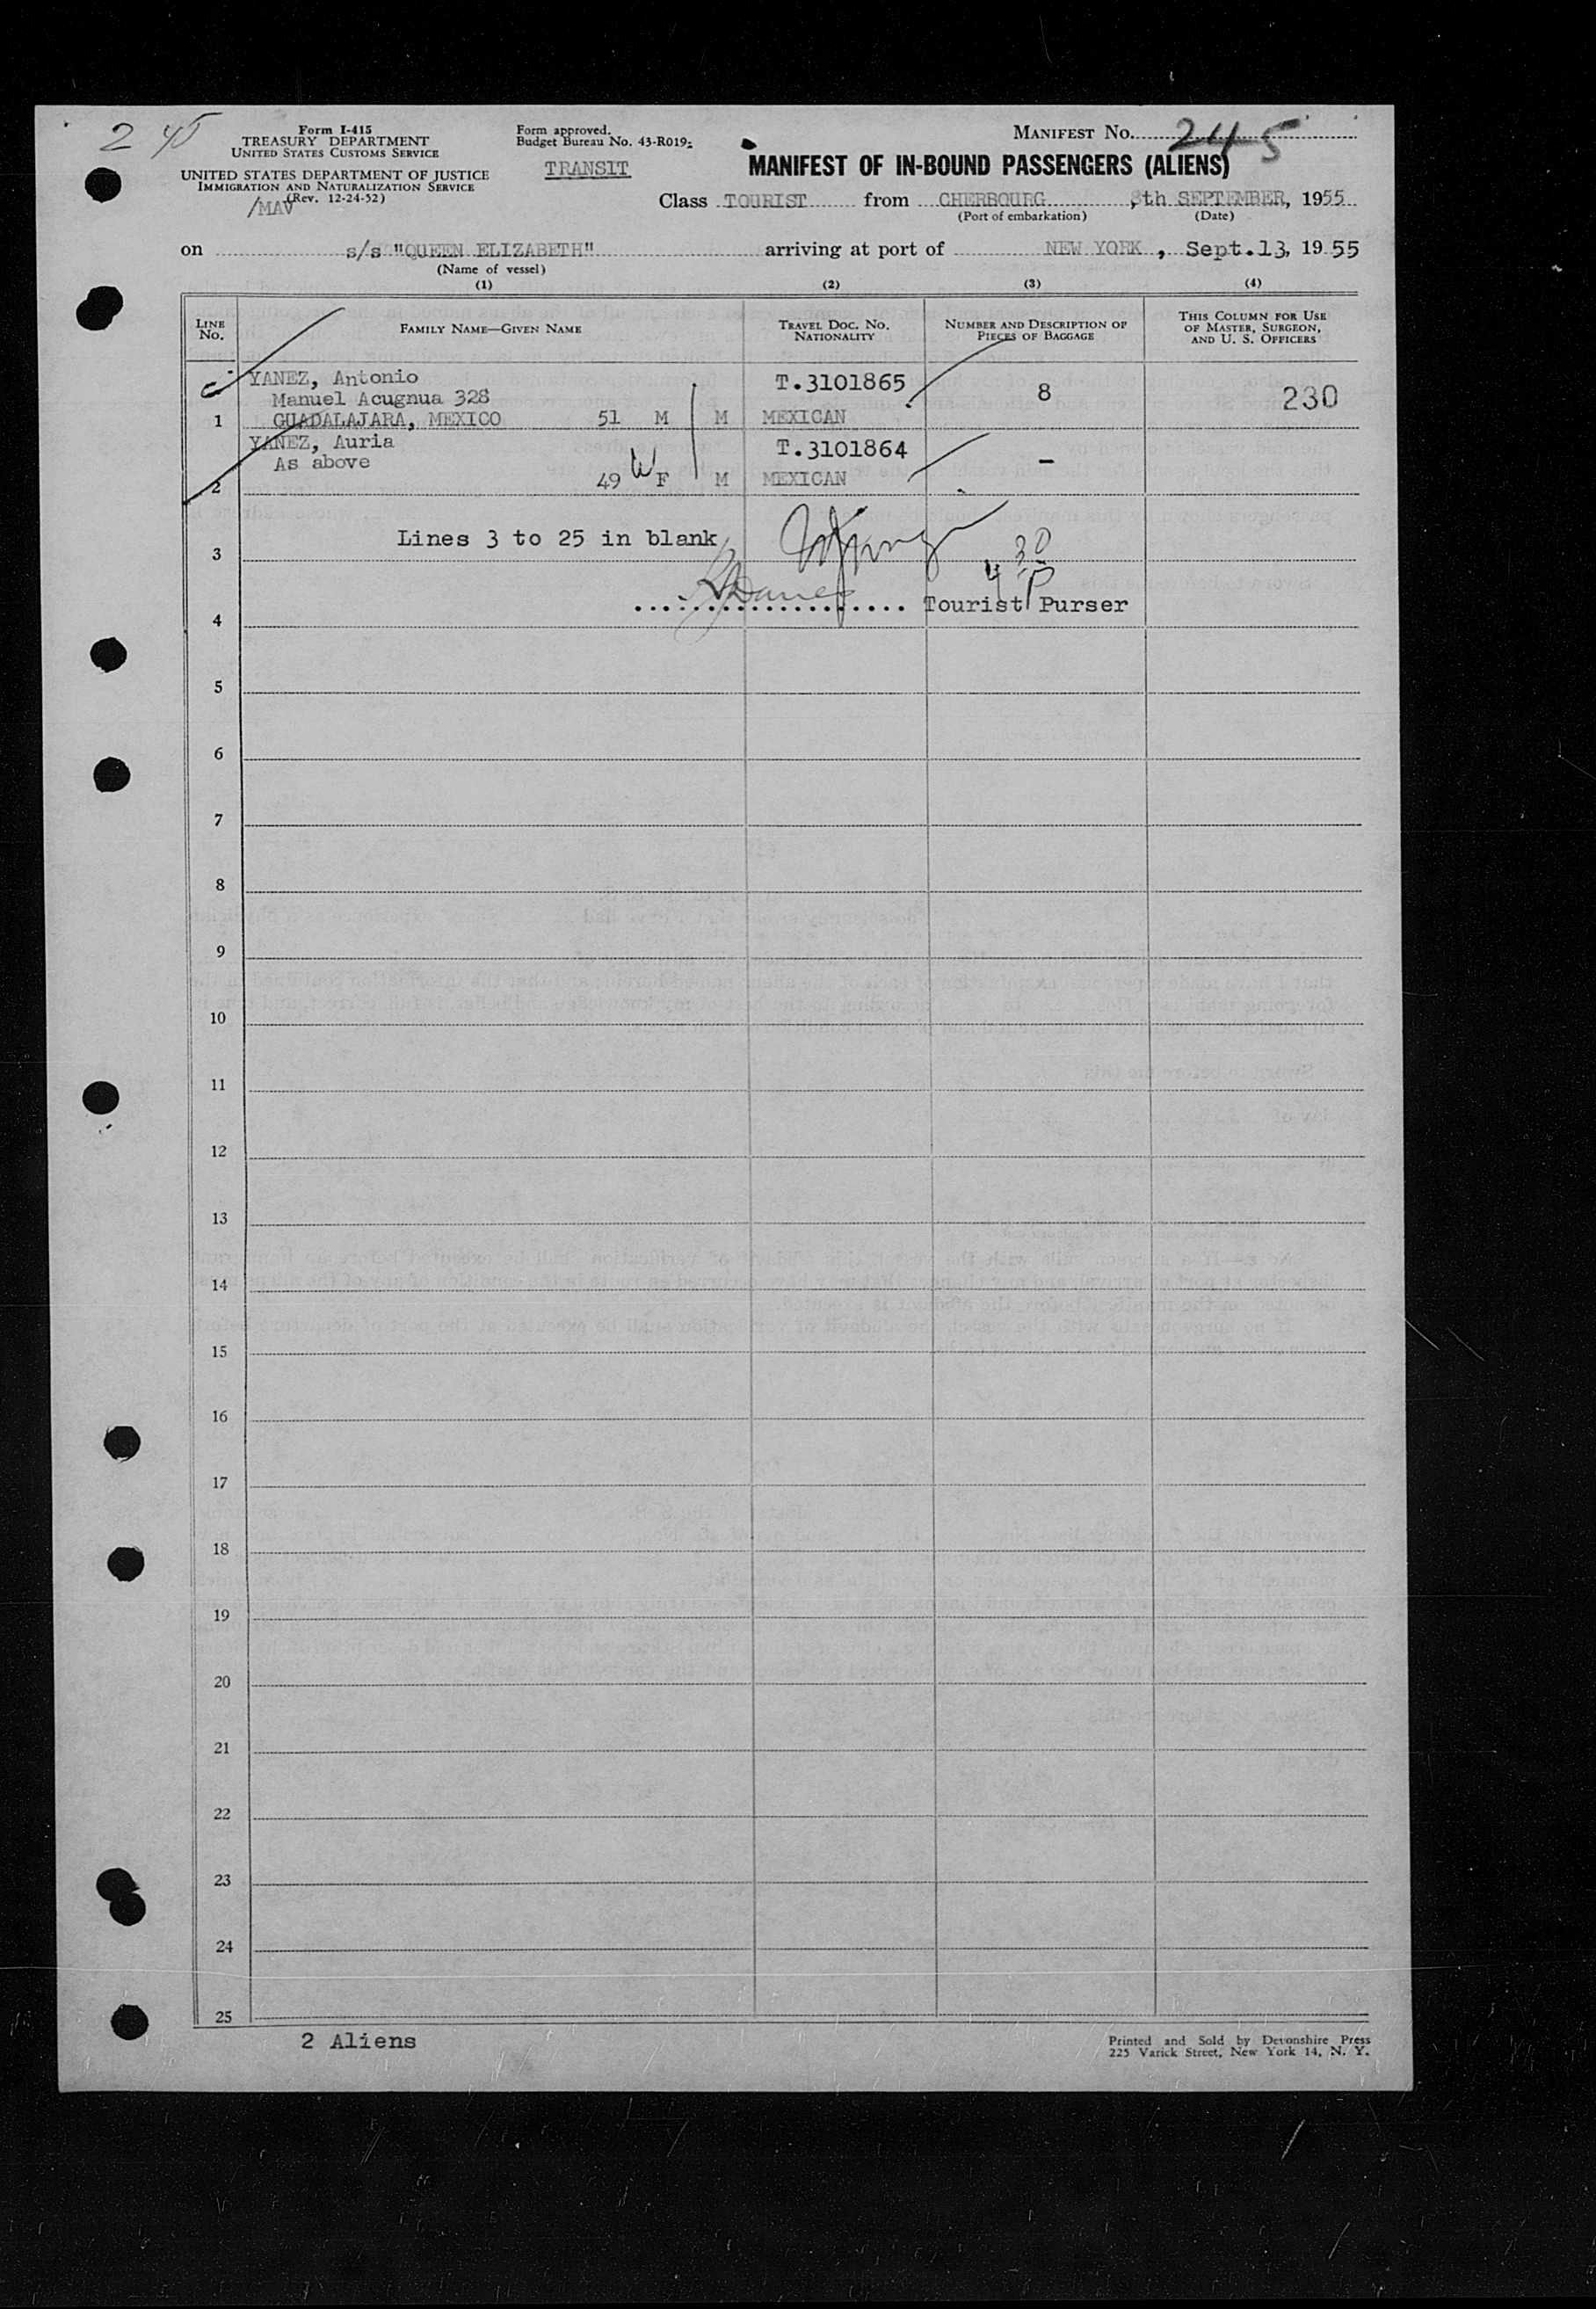 2 45
Form I-415
TREASURY DEPARTMENT
UNITED STATES CUSTOMS SERVICE
UNITED STATES DEPARTMENT OF JUSTICE
IMMIGRATION AND NATURALIZATION SERVICE
(Rev. 12-24-52)
/MAV
Form approved.
Budget Bureau No. 43-R019.
TRANSIT
MANIFEST NO. 245
MANIFEST OF IN-BOUND PASSENGERS (ALIENS)
Class TOURIST from CHERBOURG, 8th SEPTEMBER, 1955
(Port of embarkation) (Date)
on s/s "QUEEN ELIZABETH" arriving at port of NEW YORK, Sept.13, 1955
(Name of vessel)
(1) (2) (3) (4)
LINE NO. FAMILY NAME—GIVEN NAME TRAVEL DOC. NO. NATIONALITY NUMBER AND DESCRIPTION OF PIECES OF BAGGAGE THIS COLUMN FOR USE OF MASTER, SURGEON, AND U. S. OFFICERS
YANEZ, Antonio T.3101865 8 230
Manuel Acugnua 328
1 GUADALAJARA, MEXICO 51 M M MEXICAN
YANEZ, Auria T.3101864 –
As above
2 49 W F M MEXICAN
Lines 3 to 25 in blank
3
4 30 P
.................... Tourist Purser
4
5
6
7
8
9
10
11
12
13
14
15
16
17
18
19
20
21
22
23
24
25
2 Aliens
Printed and Sold by Devonshire Press
225 Varick Street, New York 14, N. Y.